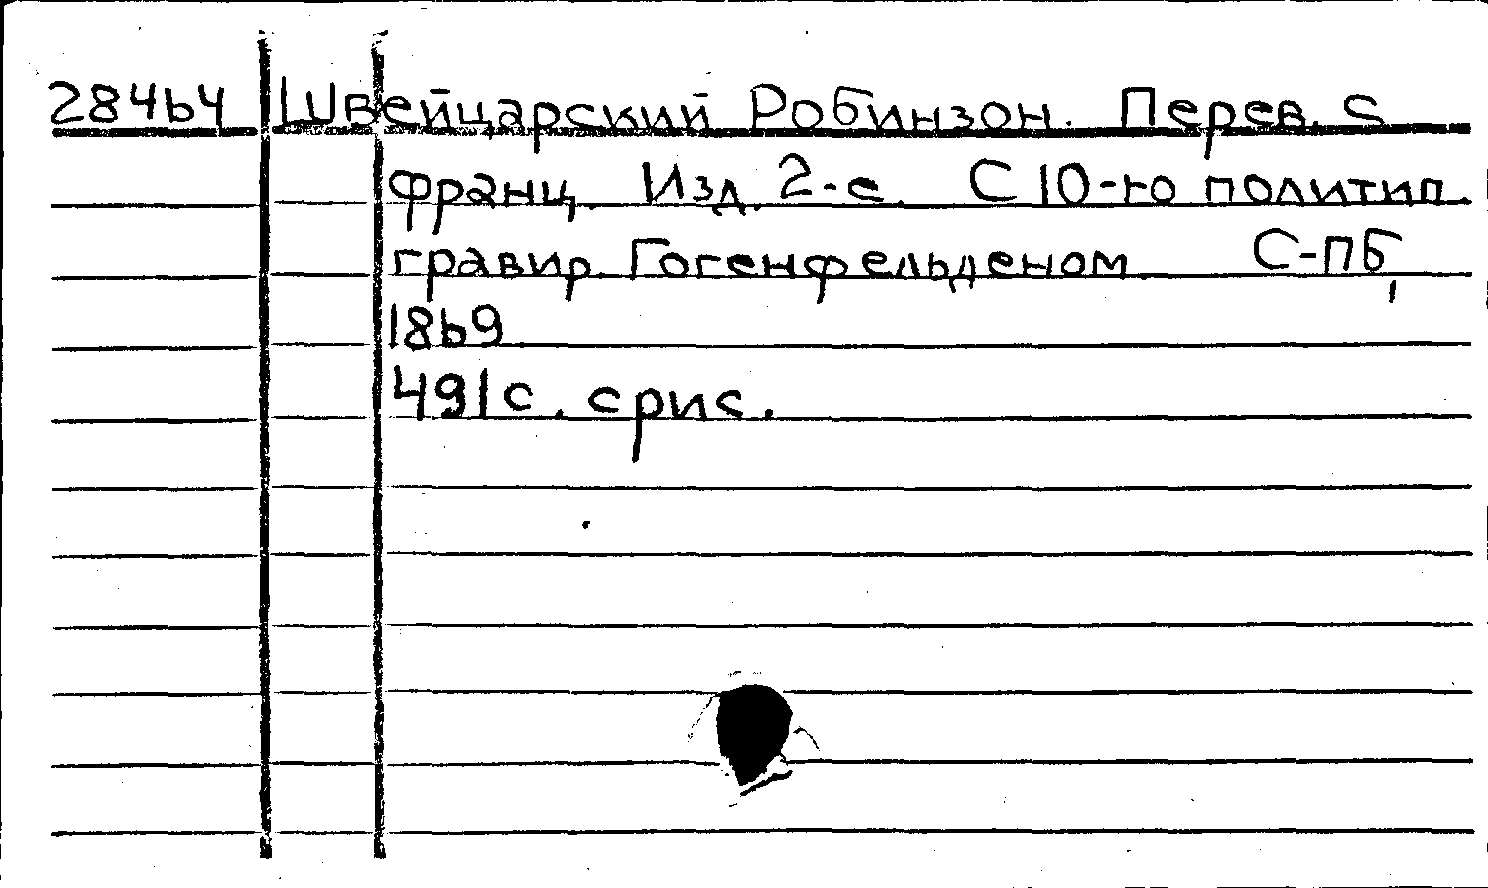 28464 Швейцарский Робинзон. Перев. с
франц. Изд. 2-е. С 10-ю политип.
гравир. Гогенфельденом. С-ПБ,
1869
491 с. с рис.